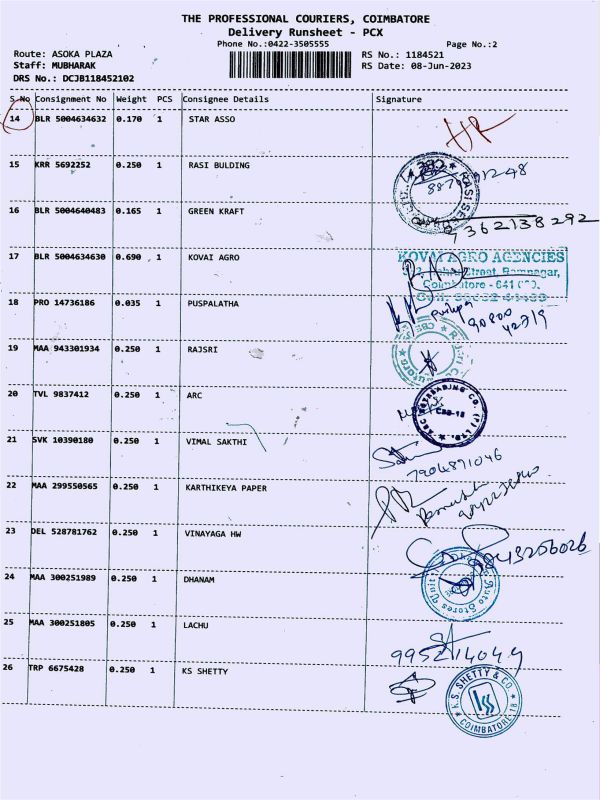 THE PROFESSIONAL COURIERS, COIMBATORE
Delivery Runsheet - PCX
Phone No.:0422-3505555 Page No.:2
Route: ASOKA PLAZA RS No.: 1184521
Staff: MUBHARAK RS Date: 08-Jun-2023
DRS No.: DCJB118452102
S No Consignment No Weight PCS Consignee Details Signature
14 BLR 5004634632 0.170 1 STAR ASSO
15 KRR 5692252 0.250 1 RASI BULDING
16 BLR 5004640483 0.165 1 GREEN KRAFT
9362138292
17 BLR 5004634630 0.690 1 KOVAI AGRO
KOVAI AGRO AGENCIES
Street, Ramnagar,
Coimbatore - 641
18 PRO 14736186 0.035 1 PUSPALATHA
90800
42719
19 MAA 943301934 0.250 1 RAJSRI
20 TVL 9837412 0.250 1 ARC
CBE-18
21 SVK 10390180 0.250 1 VIMAL SAKTHI
7904871046
22 MAA 299550565 0.250 1 KARTHIKEYA PAPER
23 DEL 528781762 0.250 1 VINAYAGA HW
9843256026
24 MAA 300251989 0.250 1 DHANAM
Auto Stores
25 MAA 300251805 0.250 1 LACHU
995214049
26 TRP 6675428 0.250 1 KS SHETTY
K.S. SHETTY & CO.
COIMBATORE 18